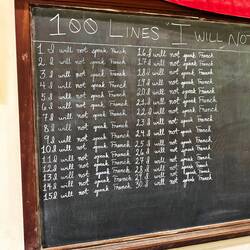 100 LINES "I WILL NOT
1. I will not speak French
2. I will not speak French
3. I will not speak French
4. I will not speak French
5. I will not speak French
6. I will not speak French
7. I will not speak French
8. I will not speak French
9. I will not speak French
10. I will not speak French
11. I will not speak French
12. I will not speak French
13. I will not speak French
14. I will not speak French
15. I will not speak French
16. I will not speak French
17. I will not speak French
18. I will not speak French
19. I will not speak French
20. I will not speak French
21. I will not speak French
22. I will not speak French
23. I will not speak French
24. I will not speak French
25. I will not speak French
26. I will not speak French
27. I will not speak French
28. I will not speak French
29. I will not speak French
30. I will not speak French